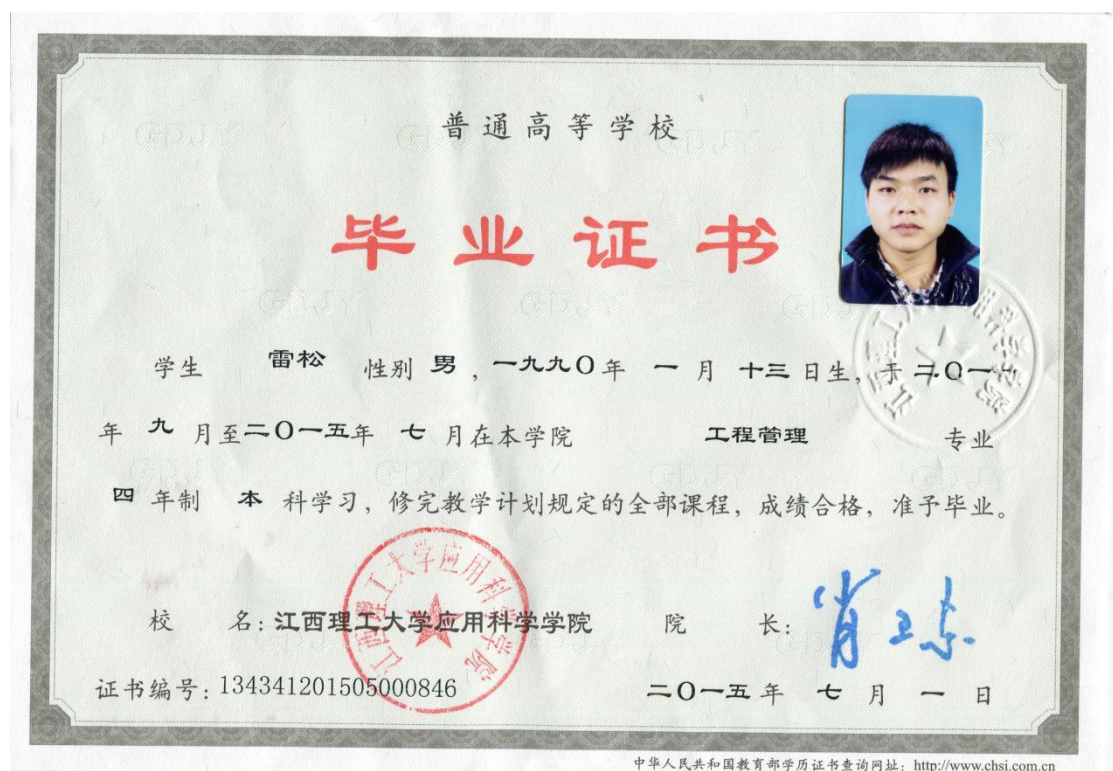 普通高等学校
毕业证书
学生 雷松 性别 男，一九九〇年 一 月 十三 日生，于 二〇一一
年 九 月至二〇一五年 七 月在本学院 工程管理 专业
四 年制 本 科学习，修完教学计划规定的全部课程，成绩合格，准予毕业。
江西理工大学应用科学学院
校 名：江西理工大学应用科学学院 院 长：
证书编号：134341201505000846 二〇一五 年 七 月 一 日
中华人民共和国教育部学历证书查询网址：http://www.chsi.com.cn